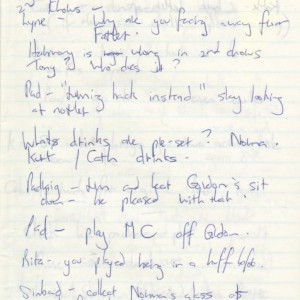 2nd Chorus –
Lyne – Why are you facing away from
Father.
Harmony is wrong in 2nd chorus
Tony? Who does it?
Pad – "turning back instead" stay looking
at not
What drinks are pre-set? Norma.
Kate / Cath drinks.
– turn and Gordon's sit
down – be pleased with that.
Pad – play MC off Gordon.
Ritz – you played being in a huff
Sinbad – collect Norma's glass